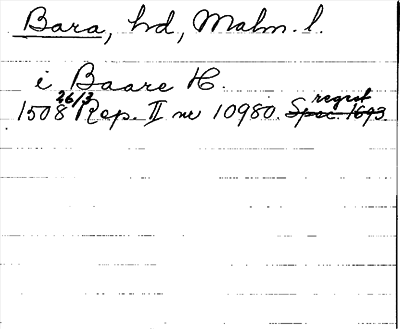 Bara, hd, Malm. l.
i Baare H.
1508 26/3 Rep. II nr 10980. Spec. 1693. regest